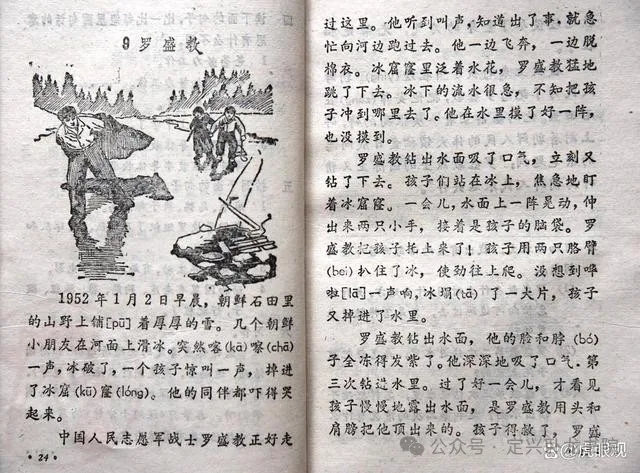 9 罗盛教
1952年1月2日早晨，朝鲜石田里
的山野上铺[pū]着厚厚的雪。几个朝鲜
小朋友在河面上滑冰。突然喀(kā)嚓(chā)
一声，冰破了，一个孩子惊叫一声，掉进
了冰窟(kū)窿(lóng)。他的同伴都吓得哭
起来。
中国人民志愿军战士罗盛教正好走
·24·
过这里。他听到叫声，知道出了事，就急
忙向河边跑过去。他一边飞奔，一边脱
棉衣。冰窟窿里泛着水花，罗盛教猛地
跳了下去。冰下的流水很急，不知把孩
子冲到哪里去了。他在水里摸了好一阵，
也没摸到。
罗盛教钻出水面吸了口气，立刻又
钻了下去。孩子们站在冰上，焦急地盯
着冰窟窿。一会儿，水面上一阵晃动，伸
出来两只小手，接着是孩子的脑袋。罗
盛教把孩子托上来了！孩子用两只胳臂
(bei)扒住了冰，使劲往上爬。没想到哗
啦[lā]一声响，冰塌(tā)了一大片，孩子
又掉进了水里。
罗盛教钻出水面，他的脸和脖(bó)
子全冻得发紫了。他深深地吸了口气，第
三次钻进水里。过了好一会儿，才看见
孩子慢慢地露出水面，是罗盛教用头和
肩膀把他顶出来的。孩子得救了，罗盛
公众号·定兴
@虎眼观